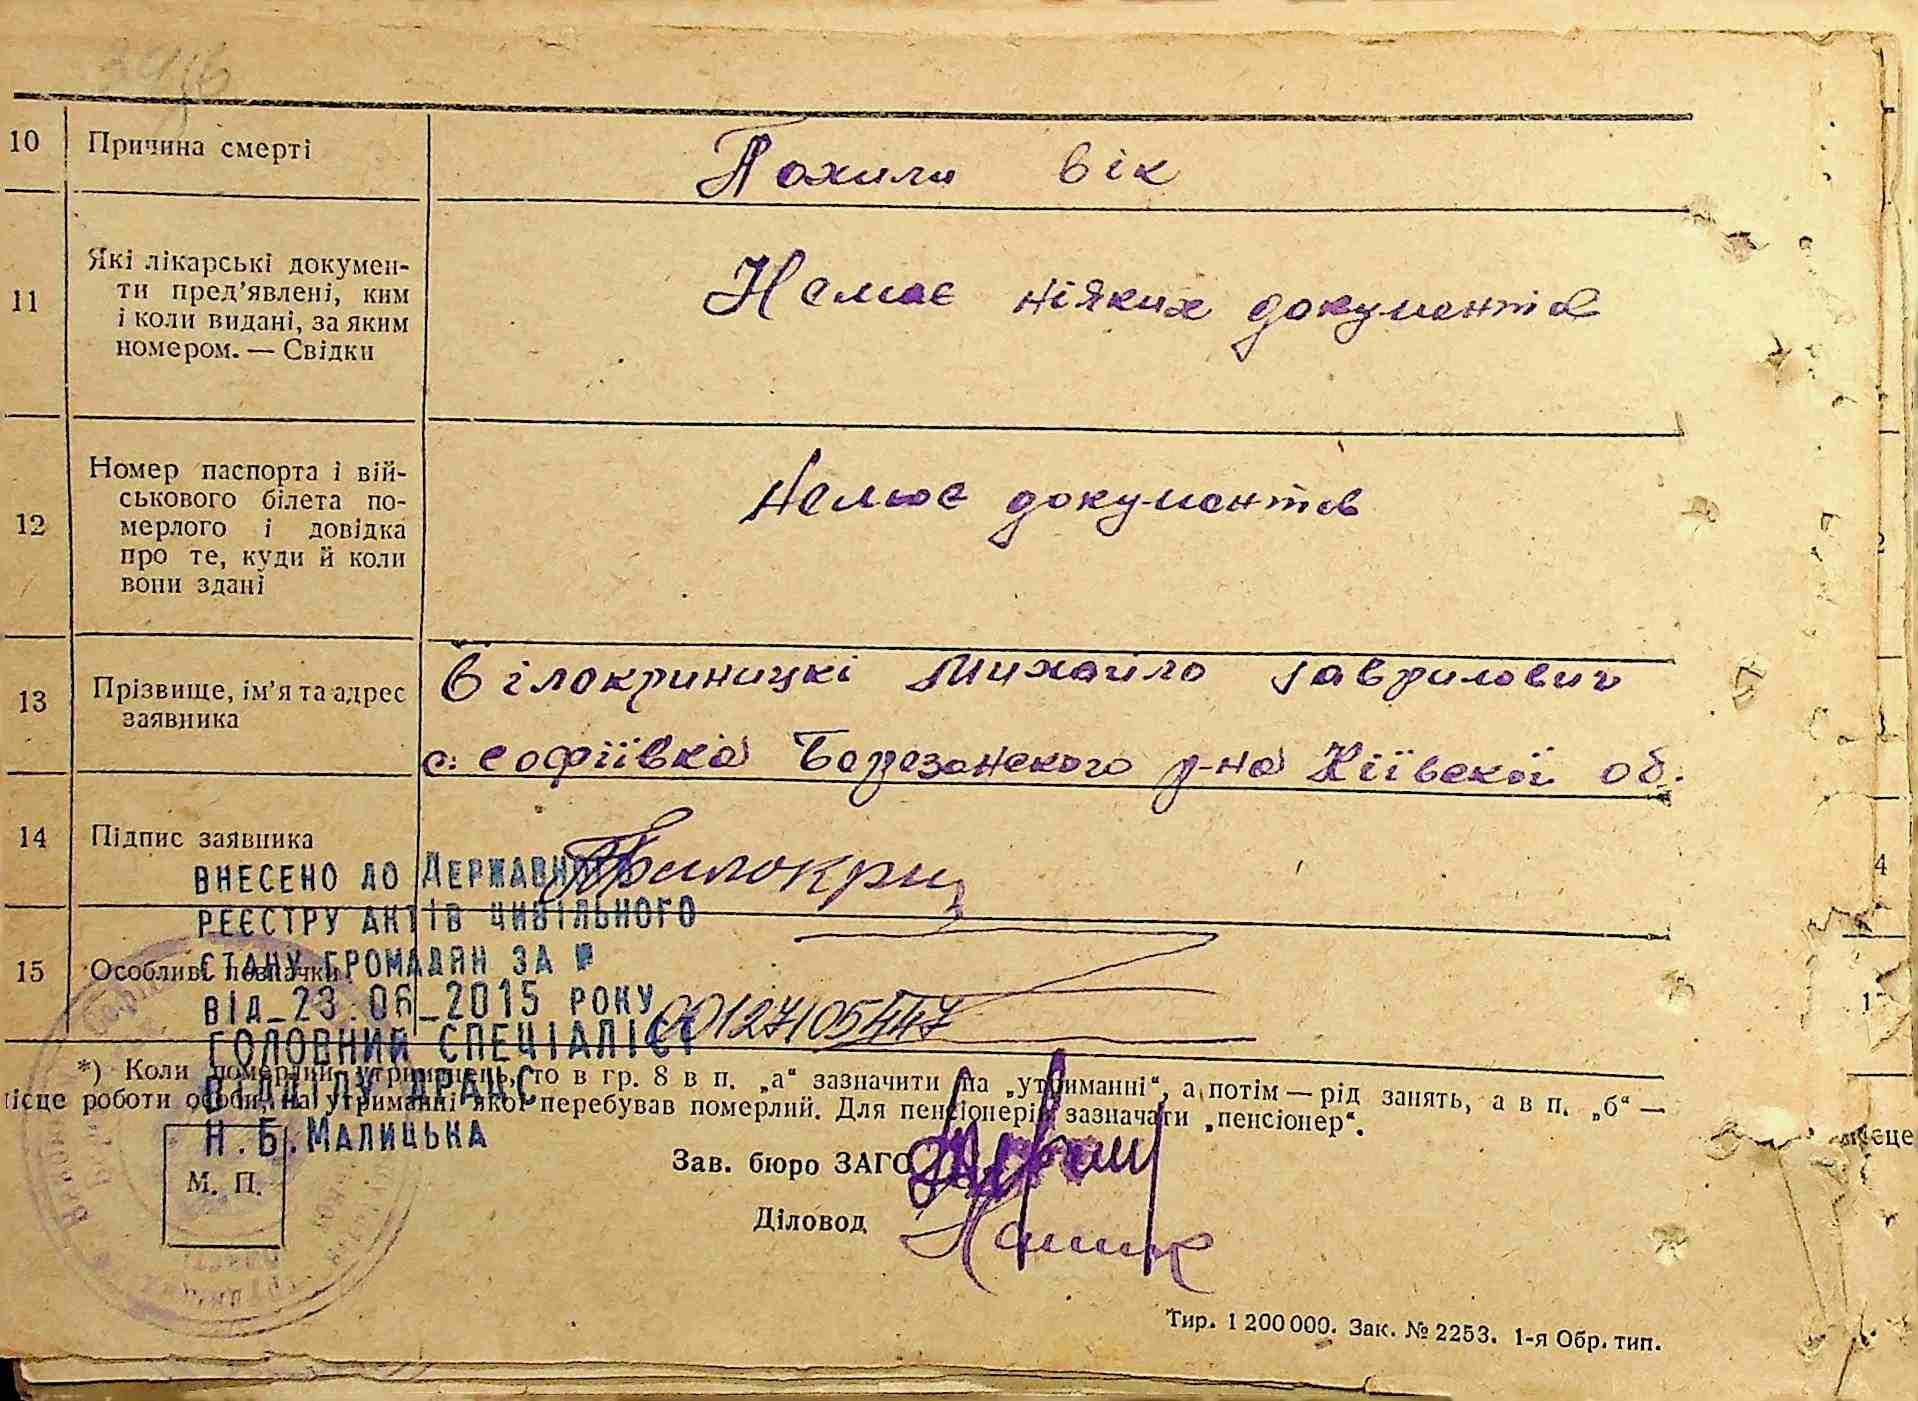 10 Причина смерті Похили вік
11 Які лікарські докумен-
ти пред’явлені, ким
і коли видані, за яким
номером. — Свідки
Немає ніяких документів
12 Номер паспорта і вій-
ськового білета по-
мерлого і довідка
про те, куди й коли
вони здані
Немає документів
13 Прізвище, ім’я та адрес
заявника
Білокриницкі Михайло Гаврилович
с. Софіївка Березанского р-на Кіївскої об.
14 Підпис заявника Билокриц
ВНЕСЕНО ДО ДЕРЖАВНОГО
РЕЄСТРУ АКТІВ ЦИВІЛЬНОГО
СТАНУ ГРОМАДЯН ЗА №
15 Особливі позначки
ВІД_23.06_2015 РОКУ 00127105447
ГОЛОВНИЙ СПЕЦІАЛІСТ
ВІДДІЛУ ДРАЦС
Н.Б.МАЛИЦЬКА
*) Коли померлий утриманець, то в гр. 8 в п. „а“ зазначити „на утриманні“, а потім — рід занять, а в п. „б“ —
місце роботи особи, на утриманні якої перебував померлий. Для пенсіонерів зазначати „пенсіонер“.
М. П.
Зав. бюро ЗАГС
Діловод
Тир. 1 200 000. Зак. № 2253. 1-я Обр. тип.